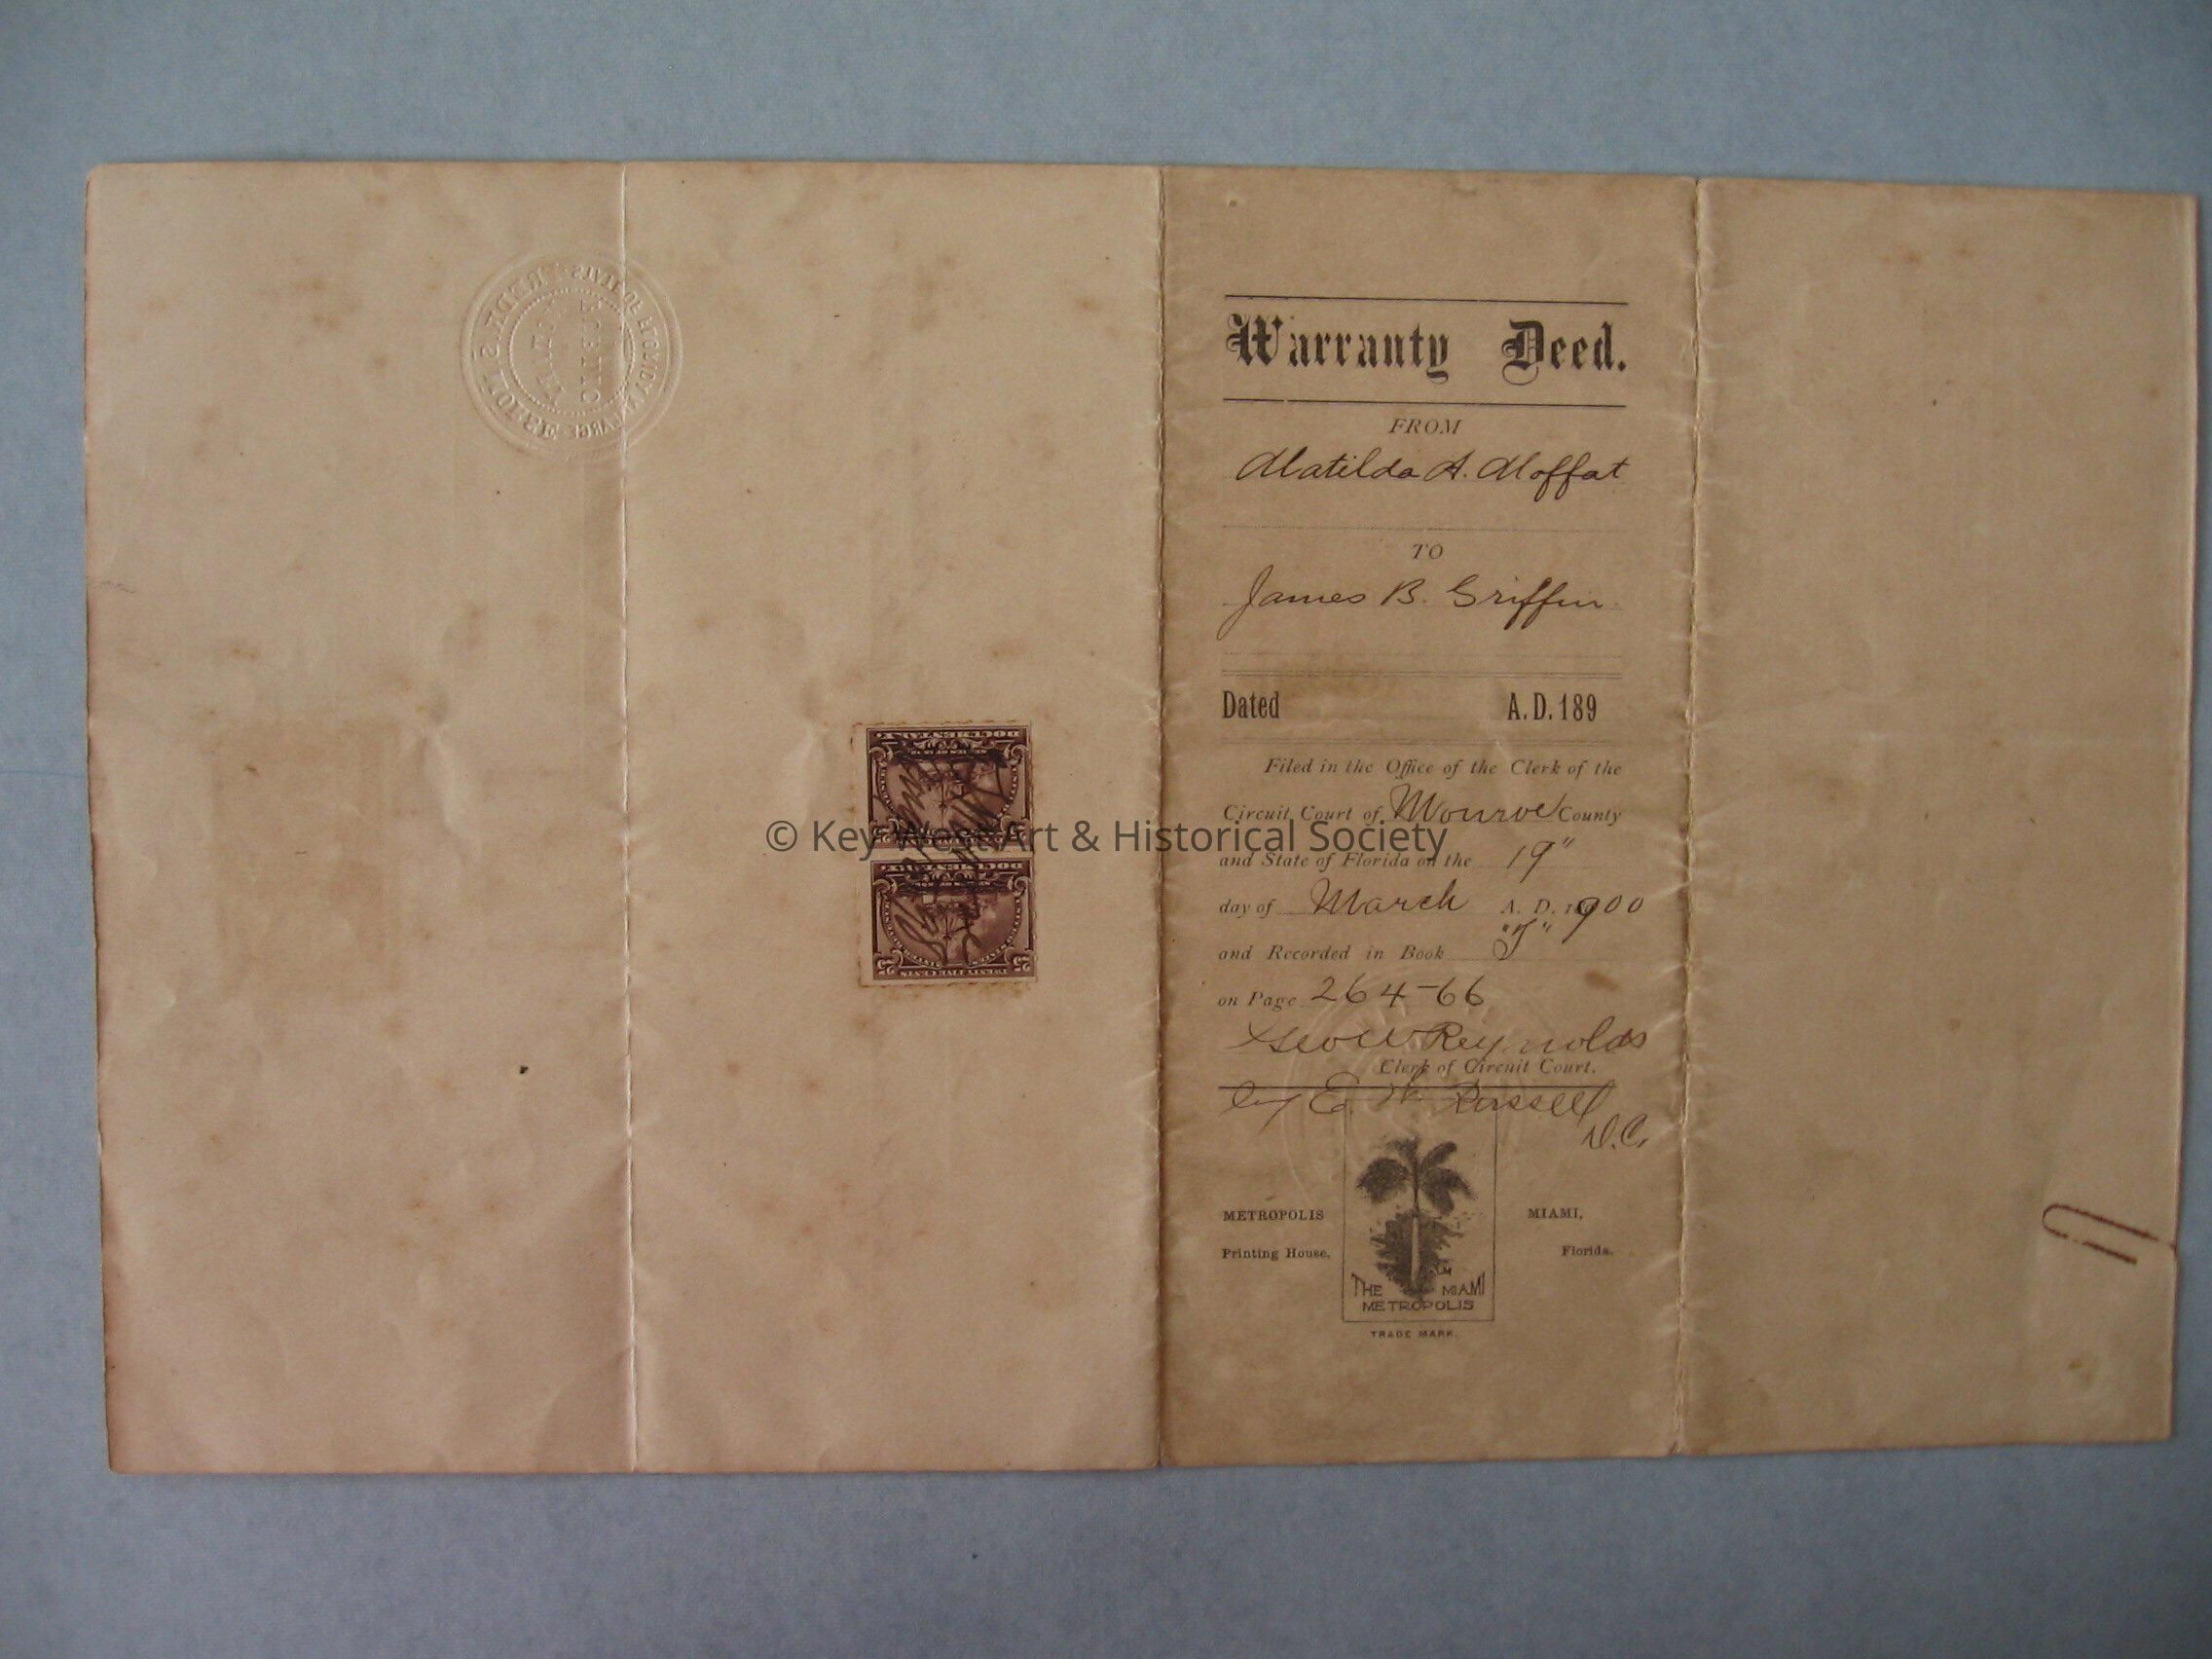 Warranty Deed.
FROM
Matilda A. Moffat
TO
James B. Griffin
Dated A.D. 189
Filed in the Office of the Clerk of the
Circuit Court of Monroe County
and State of Florida on the 19"
day of March A. D. 1900
and Recorded in Book
on Page 264-66
Geo W Reynolds
Clerk of Circuit Court.
by E. W. Russell
D.C.
METROPOLIS MIAMI,
Printing House, Florida.
THE MIAMI
METROPOLIS
TRADE MARK.
DOCUMENTARY
DOCUMENTARY
25 25
TWENTY FIVE CENTS
NOTARY
PUBLIC
STATE OF FLORIDA AT LARGE
© Key West Art & Historical Society